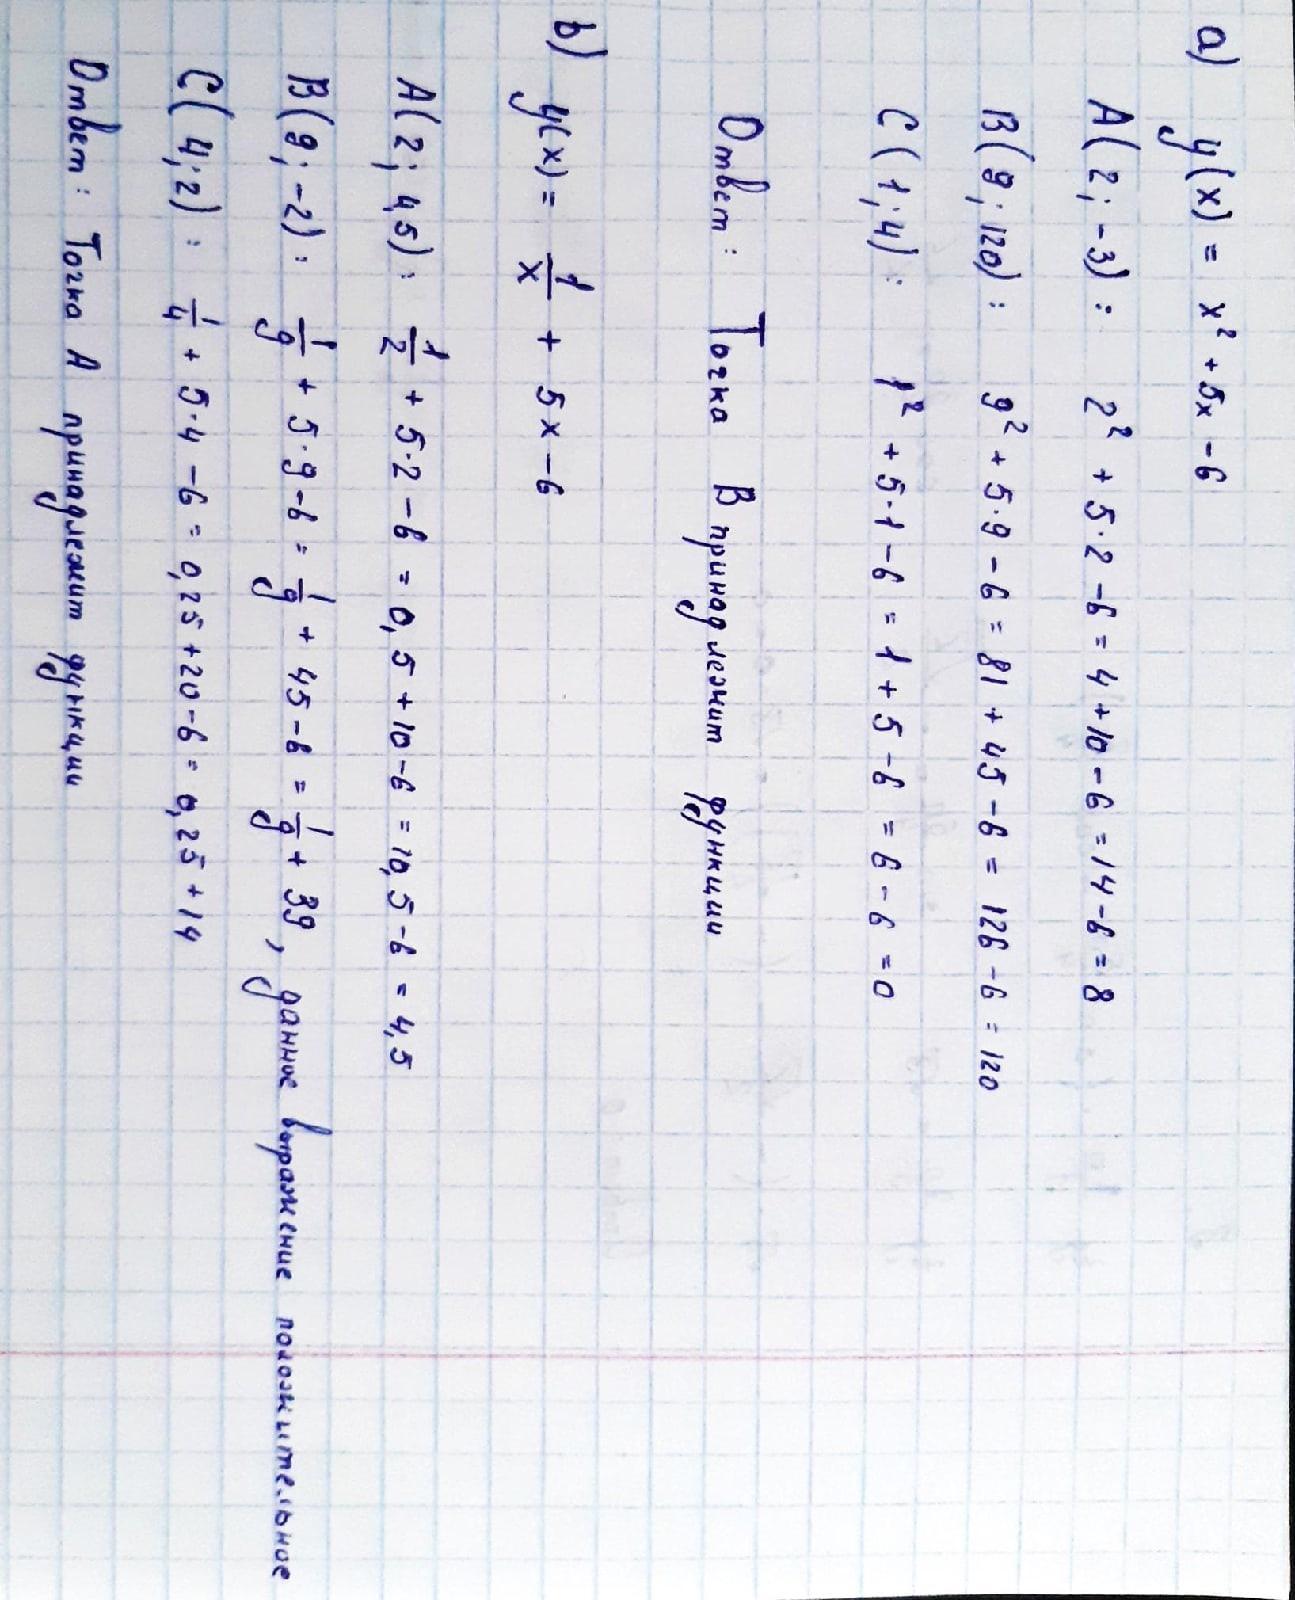 а) y(x) = x² + 5x - 6
A(2; -3): 2² + 5·2 - 6 = 4 + 10 - 6 = 14 - 6 = 8
B(9; 120): 9² + 5·9 - 6 = 81 + 45 - 6 = 126 - 6 = 120
C(1; 4): 1² + 5·1 - 6 = 1 + 5 - 6 = 6 - 6 = 0
Ответ: Точка B принадлежит функции
b) y(x) = 1/x + 5x - 6
A(2; 4,5): 1/2 + 5·2 - 6 = 0,5 + 10 - 6 = 10,5 - 6 = 4,5
B(9; -2): 1/9 + 5·9 - 6 = 1/9 + 45 - 6 = 1/9 + 39, данное выражение положительное
C(4; 2): 1/4 + 5·4 - 6 = 0,25 + 20 - 6 = 0,25 + 14
Ответ: Точка A принадлежит функции